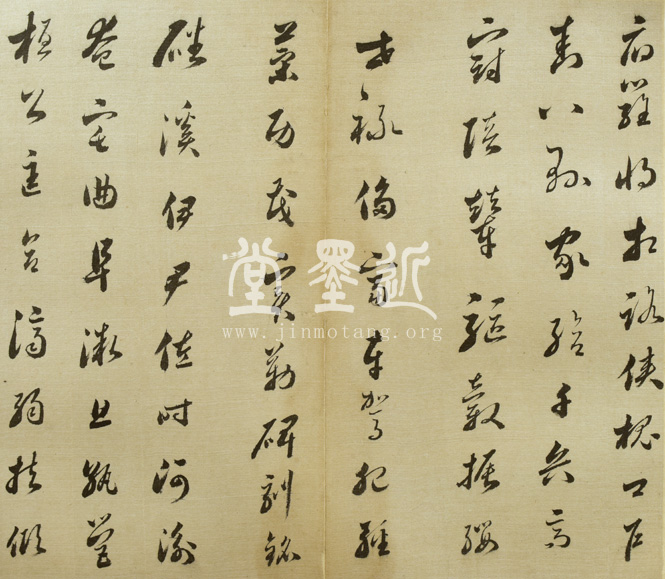 府羅將相路俠槐卿戶
封八縣家給千兵高
冠陪輦驅轂振纓
世祿侈富車駕肥輕
策功茂實勒碑刻銘
磻溪伊尹佐時阿衡
奄宅曲阜微旦孰營
桓公匡合濟弱扶傾
近墨堂
www.jinmotang.org